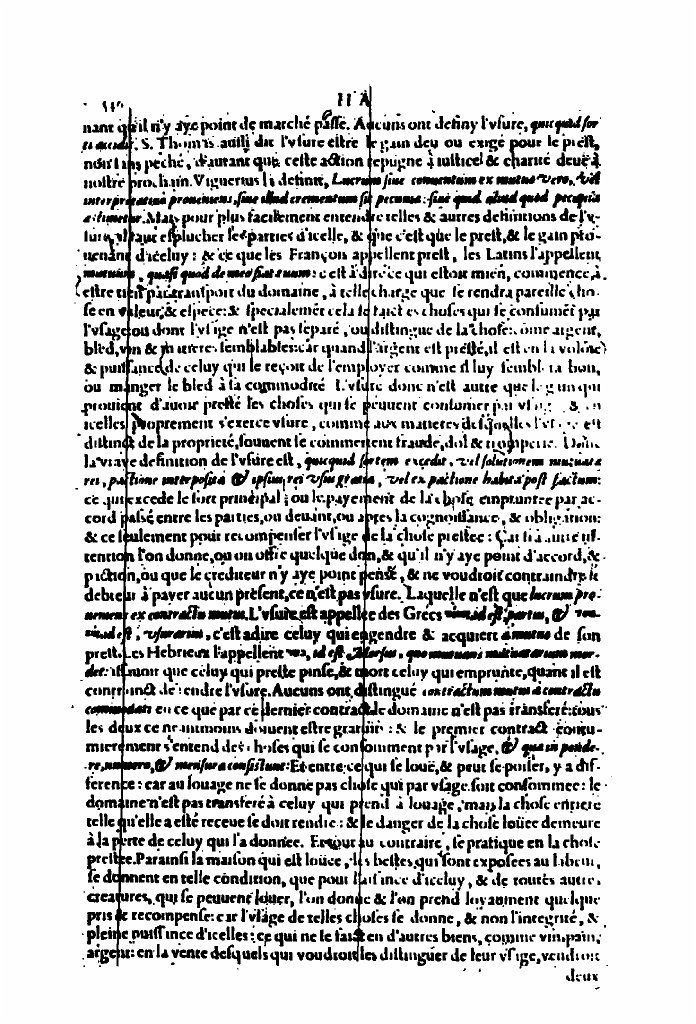 H A
nant qu'il n'y aye point de marché passé. Aucuns ont definy l'vsure, quicquid sor
. S. Thomas aussi dit l'vsure estre le gain deu ou exigé pour le prest,
non sans peché, d'autant que ceste action repugne à iustice & charité deuë à
nostre prochain. Viguerius la definit, Lucrum siue conuentum ex mutuo vero, vel
interpretatiuè proueniens, siue illud crementum sit pecunia: siue quid aliud quod pecunia
æstimetur. Mais pour plus facilement entendre telles & autres definitions de l'v-
sure, il faut esplucher les parties d'icelle, & que c'est que le prest, & le gain pro-
uenant d'iceluy: & ce que les François appellent prest, les Latins l'appellent
mutuum, quasi quod de meo fiat tuum: c'est à dire ce qui estoit mien, commence à
estre tien par transport du domaine, à telle charge que se rendra pareille cho-
se en valeur, & espece: & specialemēt cela se faict es choses qui se consumēt par
l'vsage, ou dont l'vsage n'est pas separé, ou distingue de la chose: cōme argent,
bled, vin & matieres semblables: car quand l'argent est presté, il est en la volōté
& puissance de celuy qui le reçoit de l'employer comme il luy semblera bon,
ou manger le bled à sa commodité. L'vsure donc n'est autre que le gain qui
prouient d'auoir presté les choses qui se peuuent consumer par vsage, & en
icelles proprement s'exerce vsure, comme aux matieres desquelles l'vsage est
distinct de la proprieté, souuent se commettent fraude, dol & tromperie. Donc
la vraye definition de l'vsure est, quicquid sortem excedit, vel solutionem mutuatæ
rei, pactione interposita & ipsius rei vsus gratia, vel ex pactione habita post factum:
ce qui excede le sort principal, ou le payement de la chose empruntee par ac-
cord passé entre les parties, ou deuant, ou apres la cognoissance, & obligation:
& ce seulement pour recompenser l'vsage de la chose prestee: Car si à autre in-
tention l'on donne, ou on offre quelque don, & qu'il n'y aye point d'accord, &
paction, ou que le crediteur n'y aye point pensé, & ne voudroit contraindre le
debteur à payer aucun present, ce n'est pas vsure. Laquelle n'est que lucrum pro-
ueniens ex contractu mutui. L'vsure est appellee des Grecs id est, partus, &
id est, vsurarius, c'est a dire celuy qui engendre & acquiert à mutuo de son
prest. Les Hebrieux l'appellent id est, Morsus,
det: assauoir que celuy qui preste pinse, & mort celuy qui emprunte, quant il est
contrainct de rendre l'vsure. Aucuns ont distingué contractum mutui à contractu
commodati en ce que par ce dernier contract le domaine n'est pas transferé: tous
les deux ce neantmoins doiuent estre gratuis: & le premier contract coustu-
mierement s'entend des choses qui se consomment par l'vsage, & quæ in ponde-
re, numero, & mensura consistunt: Et entre ce qui se louë, & peut se poiser, y a dif-
ference: car au louage ne se donne pas chose qui par vsage soit consommee: le
domaine n'est pas transferé à celuy qui prend à louage, mais la chose entiere
telle qu'elle a esté receue se doit rendre: & le danger de la chose loüee demeure
à la perte de celuy qui l'a donnee. Et tout au contraire, se pratique en la chose
prestee. Par ainsi la maison qui est loüee, les bestes qui sont exposees au labeur,
se donnent en telle condition, que pour l'aisance d'iceluy, & de toutes autres
creatures, qui se peuuent louer, l'on donne & l'on prend loyaument quelque
pris & recompense: car l'vsage de telles choses se donne, & non l'integrité, &
pleine puissance d'icelles: ce qui ne se faict en d'autres biens, comme vin, pain,
argent: en la vente desquels qui voudroit les distinguer de leur vsage, vendroit
deux